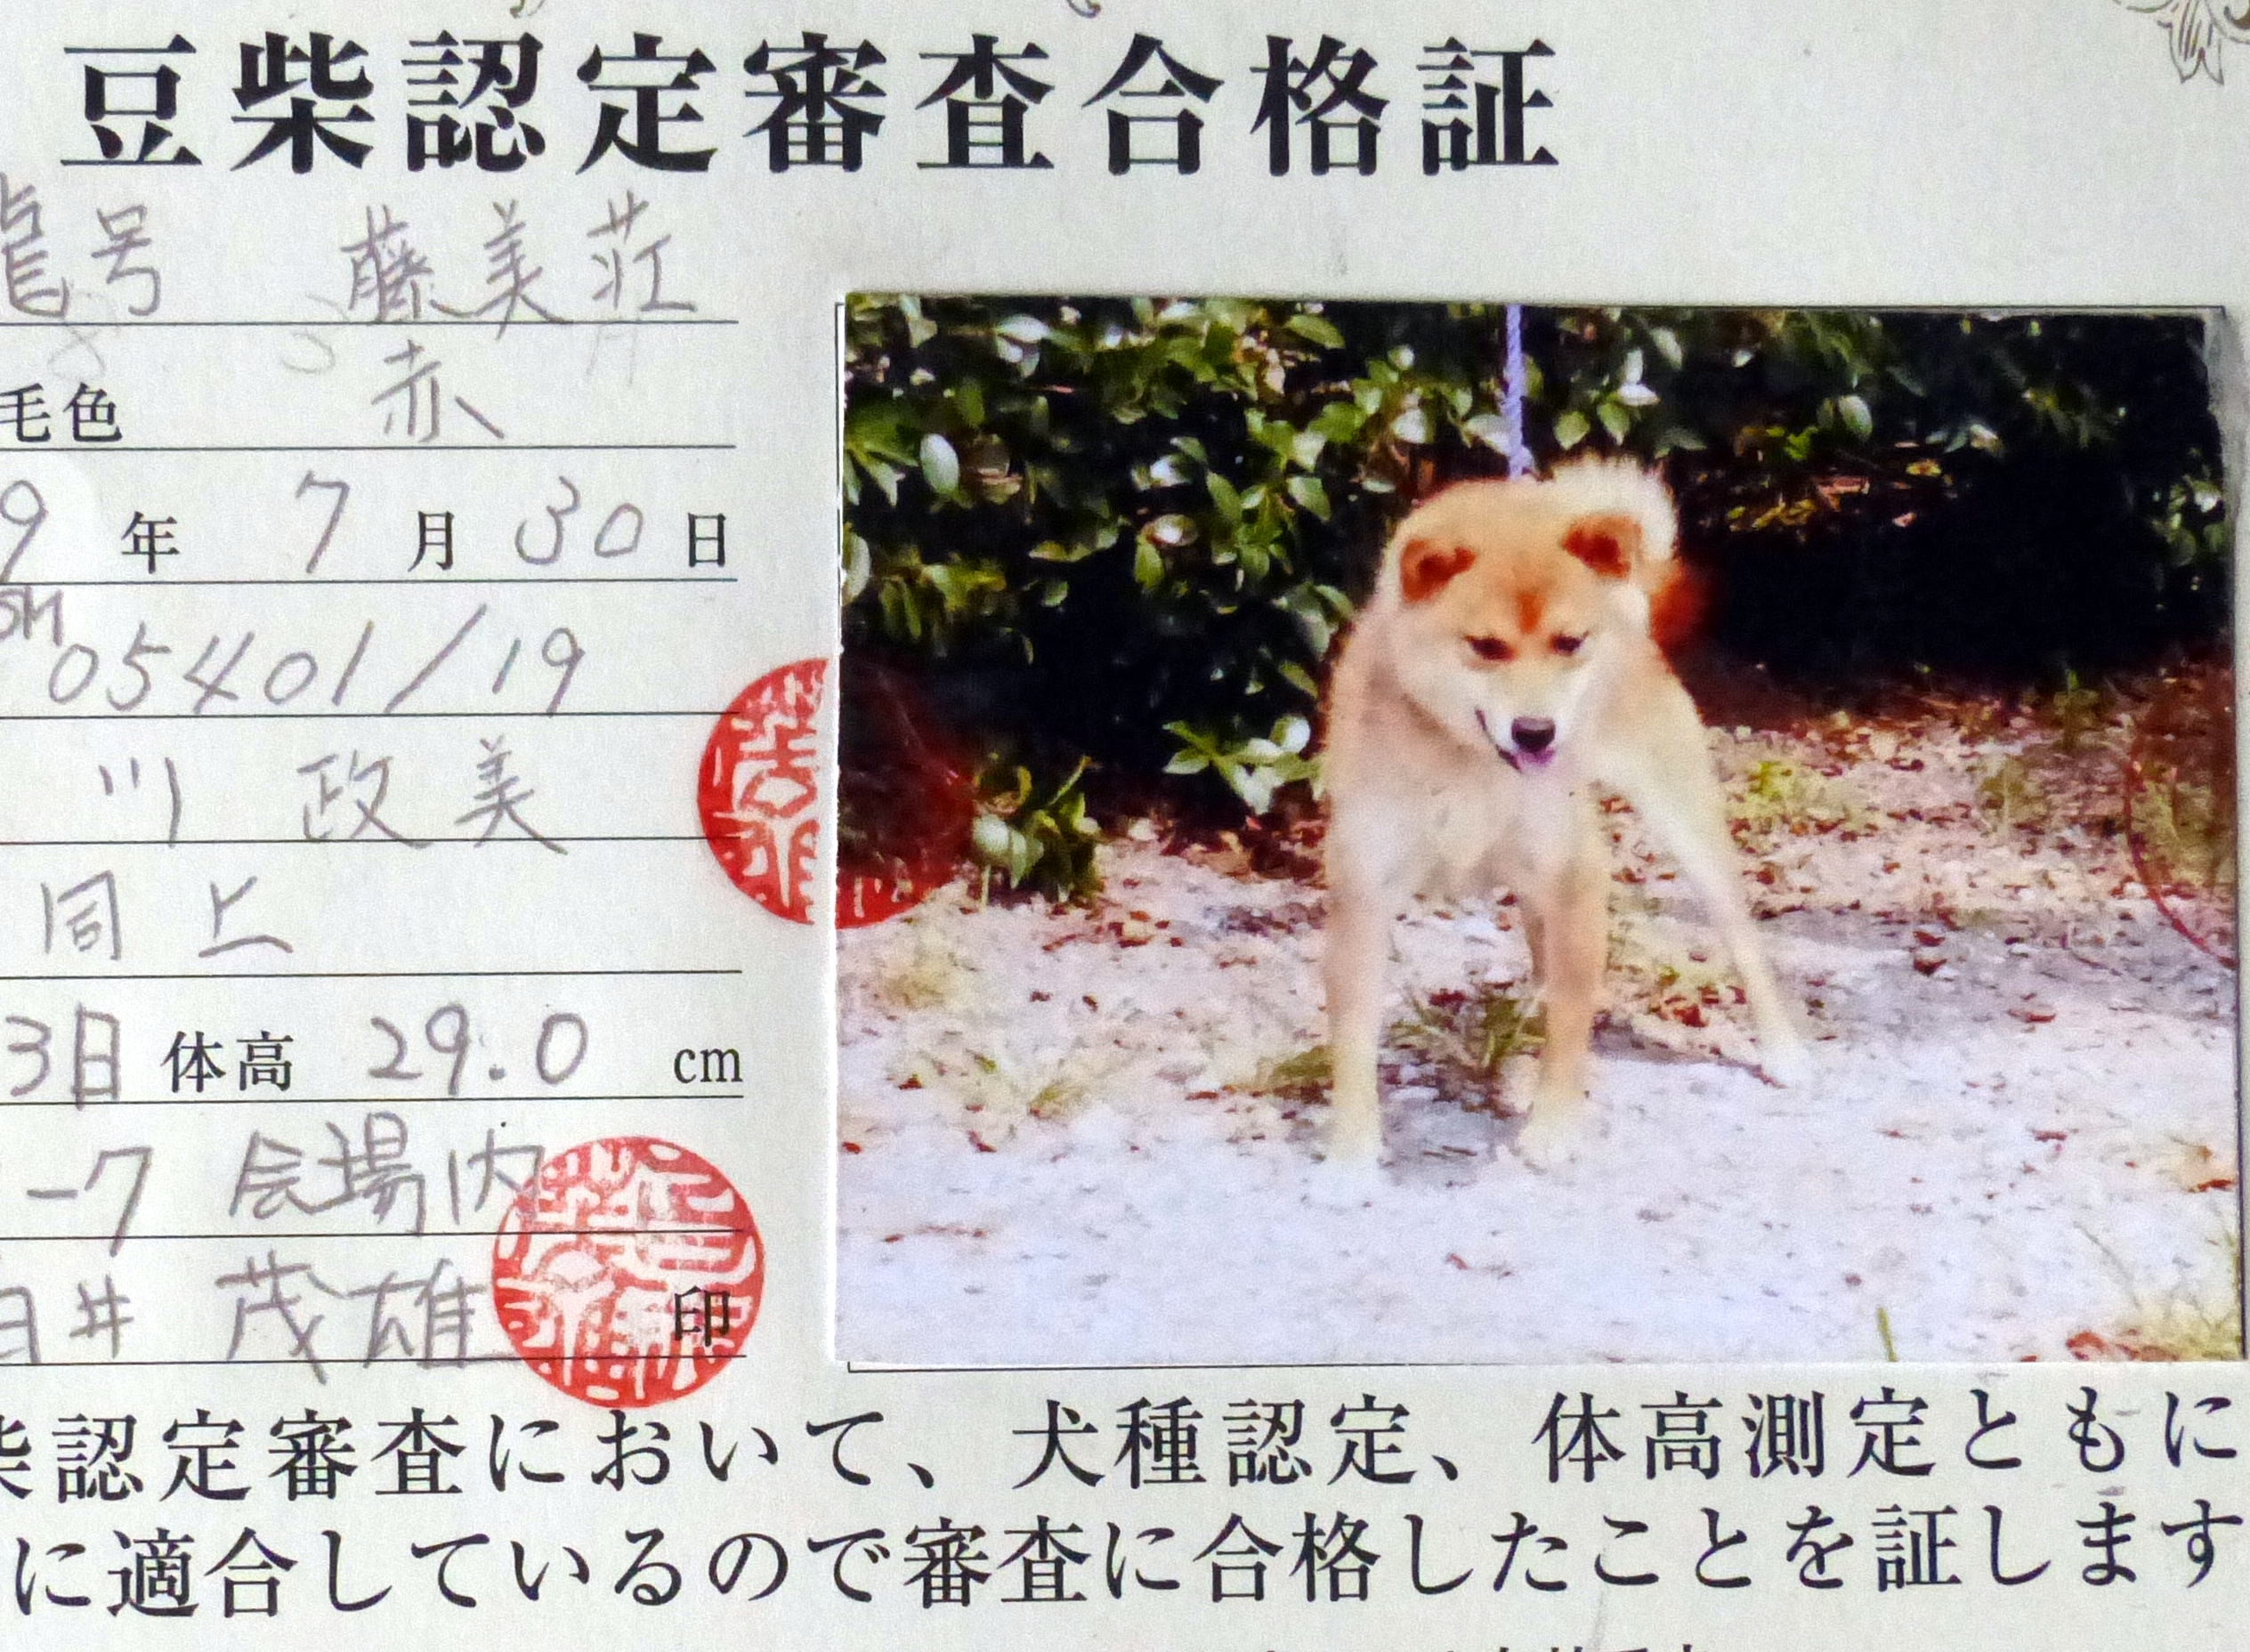 豆柴認定審査合格証
龍号 藤美荘
毛色 赤
9年 7月 30日
SM05401/19
川 政美
同上
3日 体高 29.0 cm
-7 会場内
井 茂雄 印
柴認定審査において、犬種認定、体高測定ともに
に適合しているので審査に合格したことを証します